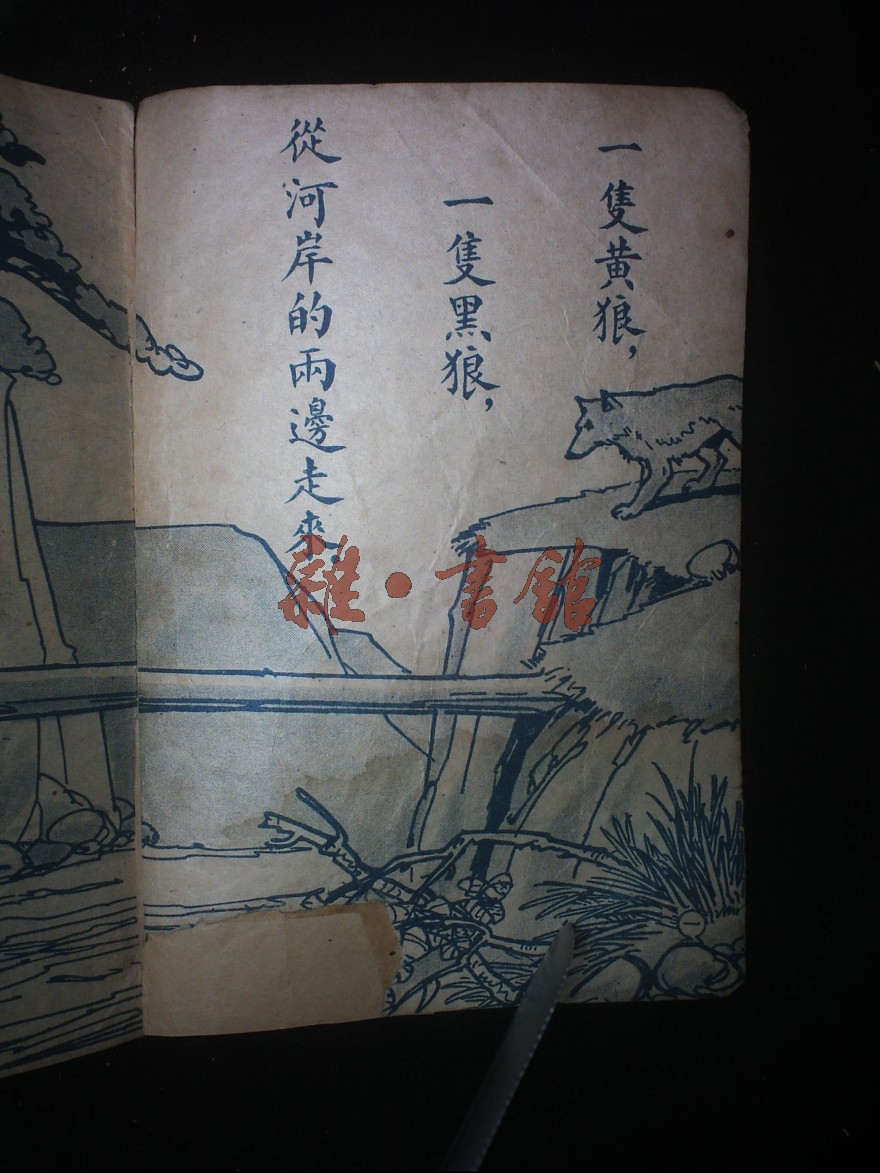 一隻黃狼，
一隻黑狼，
從河岸的兩邊走來。
雜·書館
一